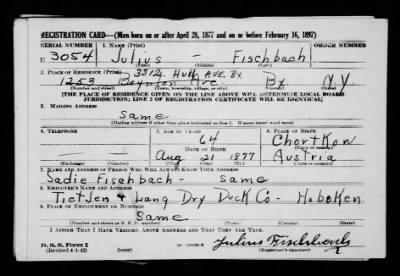 REGISTRATION CARD—(Men born on or after April 28, 1877 and on or before February 16, 1897)
SERIAL NUMBER 1. NAME (Print) ORDER NUMBER
U 3054 Julius — Fischbach
(First) (Middle) (Last)
2. PLACE OF RESIDENCE (Print) 3514 Hull AVE. BX
1253 Boynton Ave Bx N.Y
(Number and street) (Town, township, village, or city) (County) (State)
[THE PLACE OF RESIDENCE GIVEN ON THE LINE ABOVE WILL DETERMINE LOCAL BOARD
JURISDICTION; LINE 2 OF REGISTRATION CERTIFICATE WILL BE IDENTICAL]
3. MAILING ADDRESS
Same
(Mailing address if other than place indicated on line 2. If same insert word same)
4. TELEPHONE 5. AGE IN YEARS 6. PLACE OF BIRTH
64 Chortkow
DATE OF BIRTH (Town or county)
Aug 21 1877 Austria
(Exchange) (Number) (Mo.) (Day) (Yr.) (State or country)
7. NAME AND ADDRESS OF PERSON WHO WILL ALWAYS KNOW YOUR ADDRESS
Sadie Fischbach — same
8. EMPLOYER'S NAME AND ADDRESS
Tietjen & Lang Dry Dock Co — Hoboken
9. PLACE OF EMPLOYMENT OR BUSINESS
Same
(Number and street or R. F. D. number) (Town) (County) (State)
I AFFIRM THAT I HAVE VERIFIED ABOVE ANSWERS AND THAT THEY ARE TRUE.
D. S. S. Form 1
(Revised 4-1-42) (over) Julius Fischbach